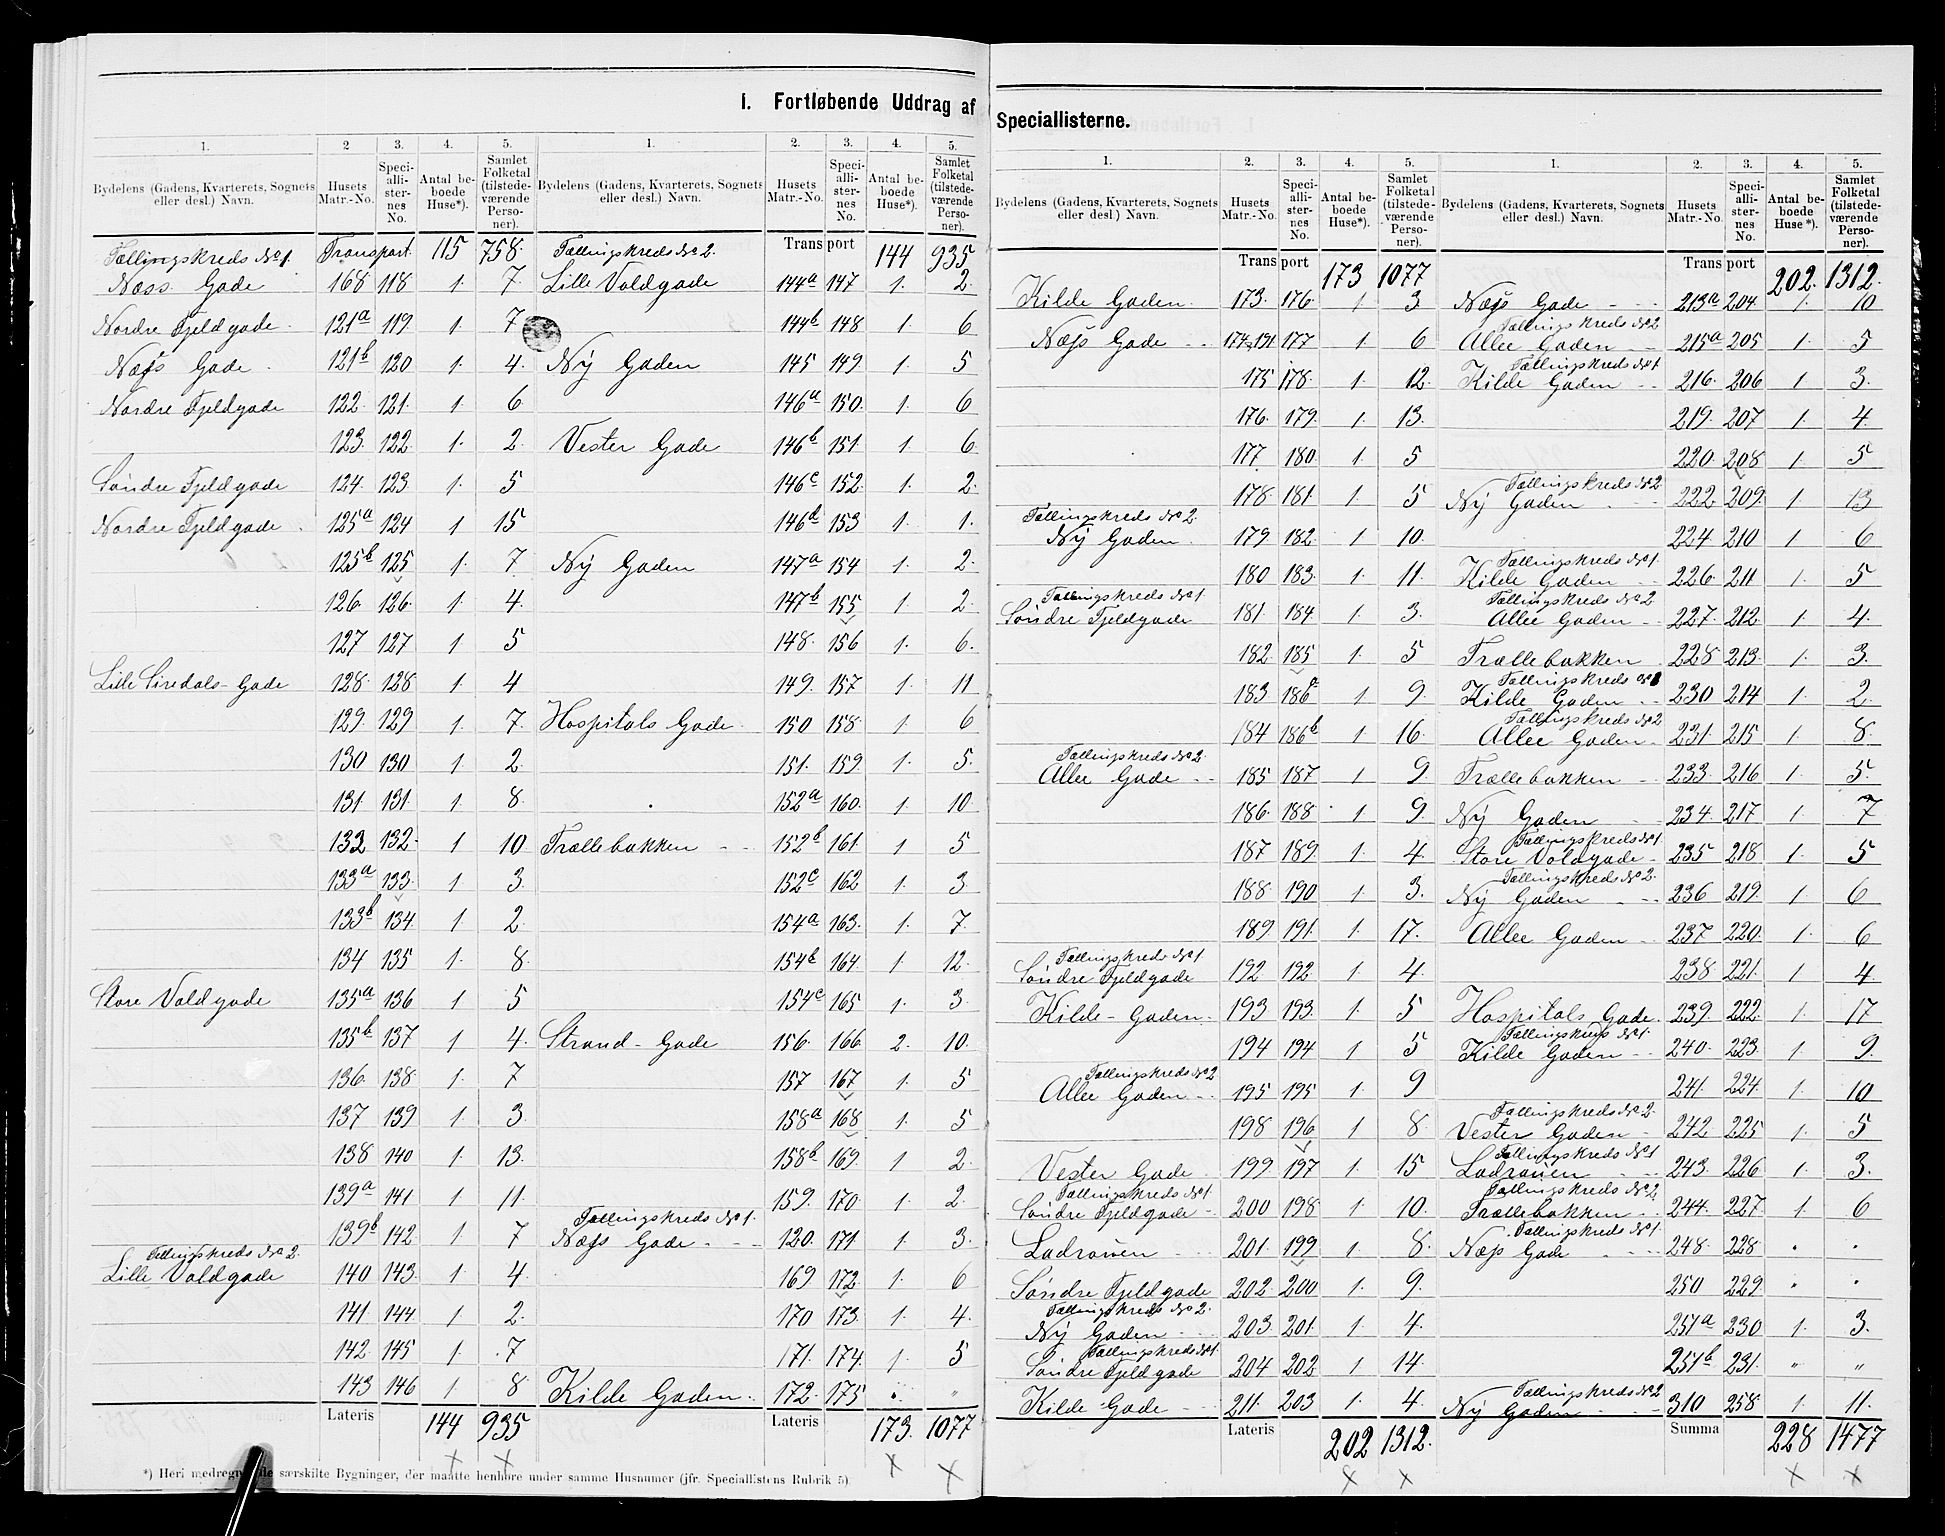 I. Fortløbende Uddrag af Speciallisterne.
1. 2 3. 4. 5. 1. 2. 3. 4. 5.
Bydelens (Gadens, Kvarterets, Sognets eller desl.) Navn. Husets Matr.-No. Speciallisternes No. Antal beboede Huse*). Samlet Folketal (tilstedeværende Personer). Bydelens (Gadens, Kvarterets, Sognets eller desl.) Navn. Husets Matr.-No. Speciallisternes No. Antal beboede Huse*). Samlet Folketal (tilstedeværende Personer).
Tællingskreds No 1. Transport. 115 758.
Næss Gade 168 118 1. 7.
Nordre Fjeldgade 121a 119. 1. 7
Næss Gade 121b 120 1. 4.
Nordre Fjeldgade 122. 121. 1 6
123 122. 1. 2.
Søndre Fjeldgade 124. 123. 1. 5
Nordre Fjeldgade 125a 124 1 15
125b 125 1. 7.
126. 126. 1. 4.
127 127 1 5
Lille Siredals-Gade 128. 128 1 4
129. 129 1. 7.
130 130 1 2.
131. 131. 1. 8.
132 132. 1 10
133a 133. 1 3.
133b 134. 1 2.
134 135 1. 8.
Store Voldgade 135a 136 1 5
135b 137 1 4.
136. 138. 1. 7
137 139 1 3.
138 140 1. 13.
139a 141 1 11.
139b 142 1. 7
Tællingskreds No 2.
Lille Voldgade 140 143. 1 4
141. 144 1 2.
142. 145 1. 7
143 146 1 8
Lateris 144 935
Tællingskreds No 2. Transport 144 935
Lille Voldgade 144a 147 1. 2.
144b 148 1. 6
Ny Gaden 145 149. 1. 5
146a 150. 1. 6
Vester Gade 146b 151. 1 6.
146c 152. 1. 2.
146d 153 1. 1.
Ny Gaden 147a 154 1. 2.
147b 155 1 2.
148. 156 1. 6.
149. 157 1. 11
Hospitals Gade 150 158. 1 6
151. 159. 1. 5.
152a 160. 1 10
Trællebakken 152b 161. 1 5
152c 162 1. 3
154a 163. 1. 7.
154b 164. 1 12.
154c 165 1. 3.
Strand-Gade 156. 166 2. 10.
157 167 1. 5
158a 168 1. 5
158b 169. 1 2.
159. 170. 1 2.
Tællingskreds No 1.
Næss Gade 120. 171 1 3.
169 172. 1. 6
170 173. 1 4.
171. 174. 1. 5
Kilde Gaden. 172. 175 . "
Lateris 173. 1077
*) Heri medregnes særskilte Bygninger, der maatte henhøre under samme Husnumer (jfr. Speciallistens Rubrik 5)
1. 2. 3. 4. 5. 1. 2. 3. 4. 5.
Bydelens (Gadens, Kvarterets, Sognets eller desl.) Navn. Husets Matr.-No. Speciallisternes No. Antal beboede Huse*). Samlet Folketal (tilstedeværende Personer). Bydelens (Gadens, Kvarterets, Sognets eller desl.) Navn. Husets Matr.-No. Speciallisternes No. Antal beboede Huse*). Samlet Folketal (tilstedeværende Personer).
Transport 173 1077
Kilde Gaden. 173. 176. 1 3
Næss Gade 177 1 6
175 178. 1. 12.
176. 179. 1. 13.
177. 180. 1. 5
178. 181. 1. 5
Tællingskreds No 2.
Ny Gaden. 179 182. 1 10.
180 183. 1. 11.
Tællingskreds No 1.
Søndre Fjeldgade 181. 184 1 3.
182 185 1. 5
183 186a 1 9.
184 186b 1 16.
Tællingskreds No 2.
Allee Gade 185 187 1 9.
186. 188. 1 9.
187 189 1. 4.
188. 190 1. 3.
189 191. 1. 17.
Tællingskreds No 1
Søndre Fjeldgade 192. 192. 1 4.
Kilde-Gaden. 193 193. 1 5
194 194 1 5
Tællingskreds No 2
Allee Gaden 195 195 1. 9
198 196 1 8.
Vester Gade 199 197 1. 15
Tællingskreds No 1.
Søndre Fjeldgade 200 198. 1. 10.
Ladrouen 201. 199 1. 8.
Søndre Fjeldgade 202. 200 1. 9.
Tællingskreds No 2.
Ny Gaden 203 201. 1. 4.
Tællingskreds No 1.
Søndre Fjeldgade 204 202 1 14.
Kilde-Gade 211. 203 1. 4.
Lateris 202 1312.
Transport 202. 1312.
Næss Gade 213a 204. 1. 10
Tællingskreds No 2
Allee Gaden 215a 205 1. 5
Tællingskreds No 1
Kilde Gaden 216. 206 1 3.
219. 207 1 4.
220. 208 1. 5
Tællingskreds No 2
Ny Gaden 222. 209. 1 13
224. 210 1 6
Tællingskreds No 1.
Kilde Gaden 226. 211 1. 5
Tællingskreds No 2
Allee Gaden 227. 212. 1. 4.
Trællebakken 228. 213. 1. 3.
Tællingskreds No 1
Kilde Gaden 230 214 1 2.
Tællingskreds No 2
Allee Gaden. 231. 215 1 8.
Trællebakken 233. 216 1. 5.
Ny Gaden 234. 217 1 7
Tællingskreds No 1.
Store Voldgade 235 218 1. 5
Tællingskreds No 2.
Ny Gaden 236 219. 1 6
Allee Gaden 237 220. 1. 6
238. 221. 1 4.
Hospitals Gade. 239. 222. 1. 17
Tællingskreds No 1.
Kilde Gaden 240. 223. 1. 9.
241. 224. 1. 10
Tællingskreds No 2.
Vester Gaden 242. 225 1. 5
Tællingskreds No 1
Ladrouen 243. 226 1. 3.
Tællingskreds No 2
Trællebakken 244. 227. 1 6
Tællingskreds No 1.
Næss Gade 248. 228. . .
250 229 " .
251a 230 1. 3.
251b 231. " "
Tællingskreds No 2
Ny Gaden 310 258. 1. 11.
Summa 228 1477